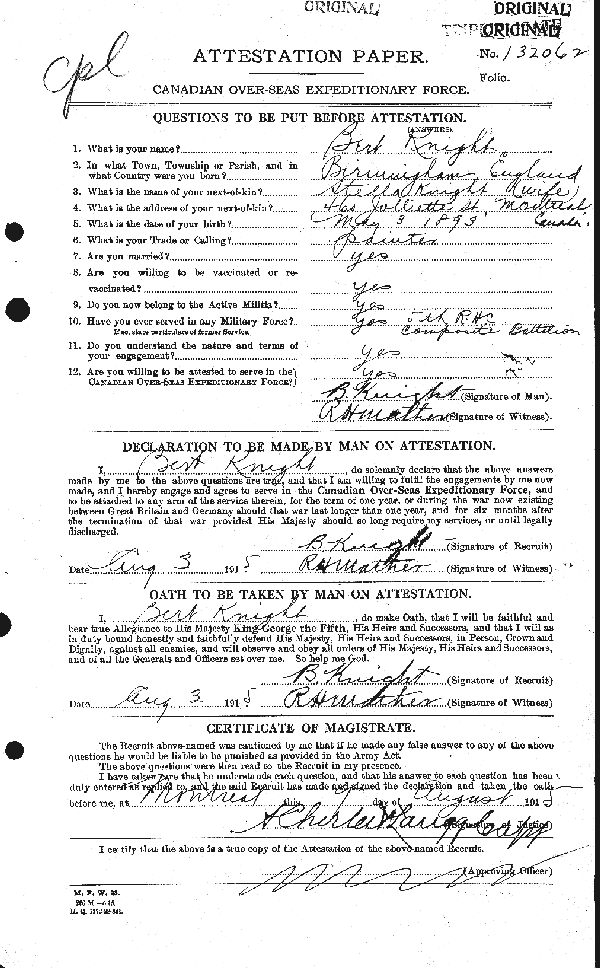 ORIGINAL
ORIGINAL
ORIGINAL
No. 132062
Folio.
Cpl
ATTESTATION PAPER.
CANADIAN OVER-SEAS EXPEDITIONARY FORCE.
QUESTIONS TO BE PUT BEFORE ATTESTATION.
(ANSWERS)
1. What is your name? Bert Knight
2. In what Town, Township or Parish, and in
what Country were you born? Birmingham, England
3. What is the name of your next-of-kin? Stella Knight (wife)
4. What is the address of your next-of-kin? Joliette St, Montreal,
Canada
5. What is the date of your birth? May 3 1893
6. What is your Trade or Calling? Painter
7. Are you married? yes
8. Are you willing to be vaccinated or re-
vaccinated? yes
9. Do you now belong to the Active Militia? yes
10. Have you ever served in any Military Force? yes 5th R.H.C
If so, state particulars of former Service. Composite Battalion
11. Do you understand the nature and terms of
your engagement? yes
12. Are you willing to be attested to serve in the
CANADIAN OVER-SEAS EXPEDITIONARY FORCE? yes
B. Knight (Signature of Man).
R H Mather (Signature of Witness).
DECLARATION TO BE MADE BY MAN ON ATTESTATION.
I, Bert Knight, do solemnly declare that the above answers
made by me to the above questions are true, and that I am willing to fulfil the engagements by me now
made, and I hereby engage and agree to serve in the Canadian Over-Seas Expeditionary Force, and
to be attached to any arm of the service therein, for the term of one year, or during the war now existing
between Great Britain and Germany should that war last longer than one year, and for six months after
the termination of that war provided His Majesty should so long require my services, or until legally
discharged.
B Knight (Signature of Recruit)
Date Aug 3 1915 R H Mather (Signature of Witness)
OATH TO BE TAKEN BY MAN ON ATTESTATION.
I, Bert Knight, do make Oath, that I will be faithful and
bear true Allegiance to His Majesty King George the Fifth, His Heirs and Successors, and that I will as
in duty bound honestly and faithfully defend His Majesty, His Heirs and Successors, in Person, Crown and
Dignity, against all enemies, and will observe and obey all orders of His Majesty, His Heirs and Successors,
and of all the Generals and Officers set over me. So help me God.
B. Knight (Signature of Recruit)
Date Aug 3 1915 R H Mather (Signature of Witness)
CERTIFICATE OF MAGISTRATE.
The Recruit above-named was cautioned by me that if he made any false answer to any of the above
questions he would be liable to be punished as provided in the Army Act.
The above questions were then read to the Recruit in my presence.
I have taken care that he understands each question, and that his answer to each question has been
duly entered as replied to, and the said Recruit has made and signed the declaration and taken the oath
before me, at Montreal this day of August 1915
(Signature of Justice)
I certify that the above is a true copy of the Attestation of the above-named Recruit.
(Approving Officer)